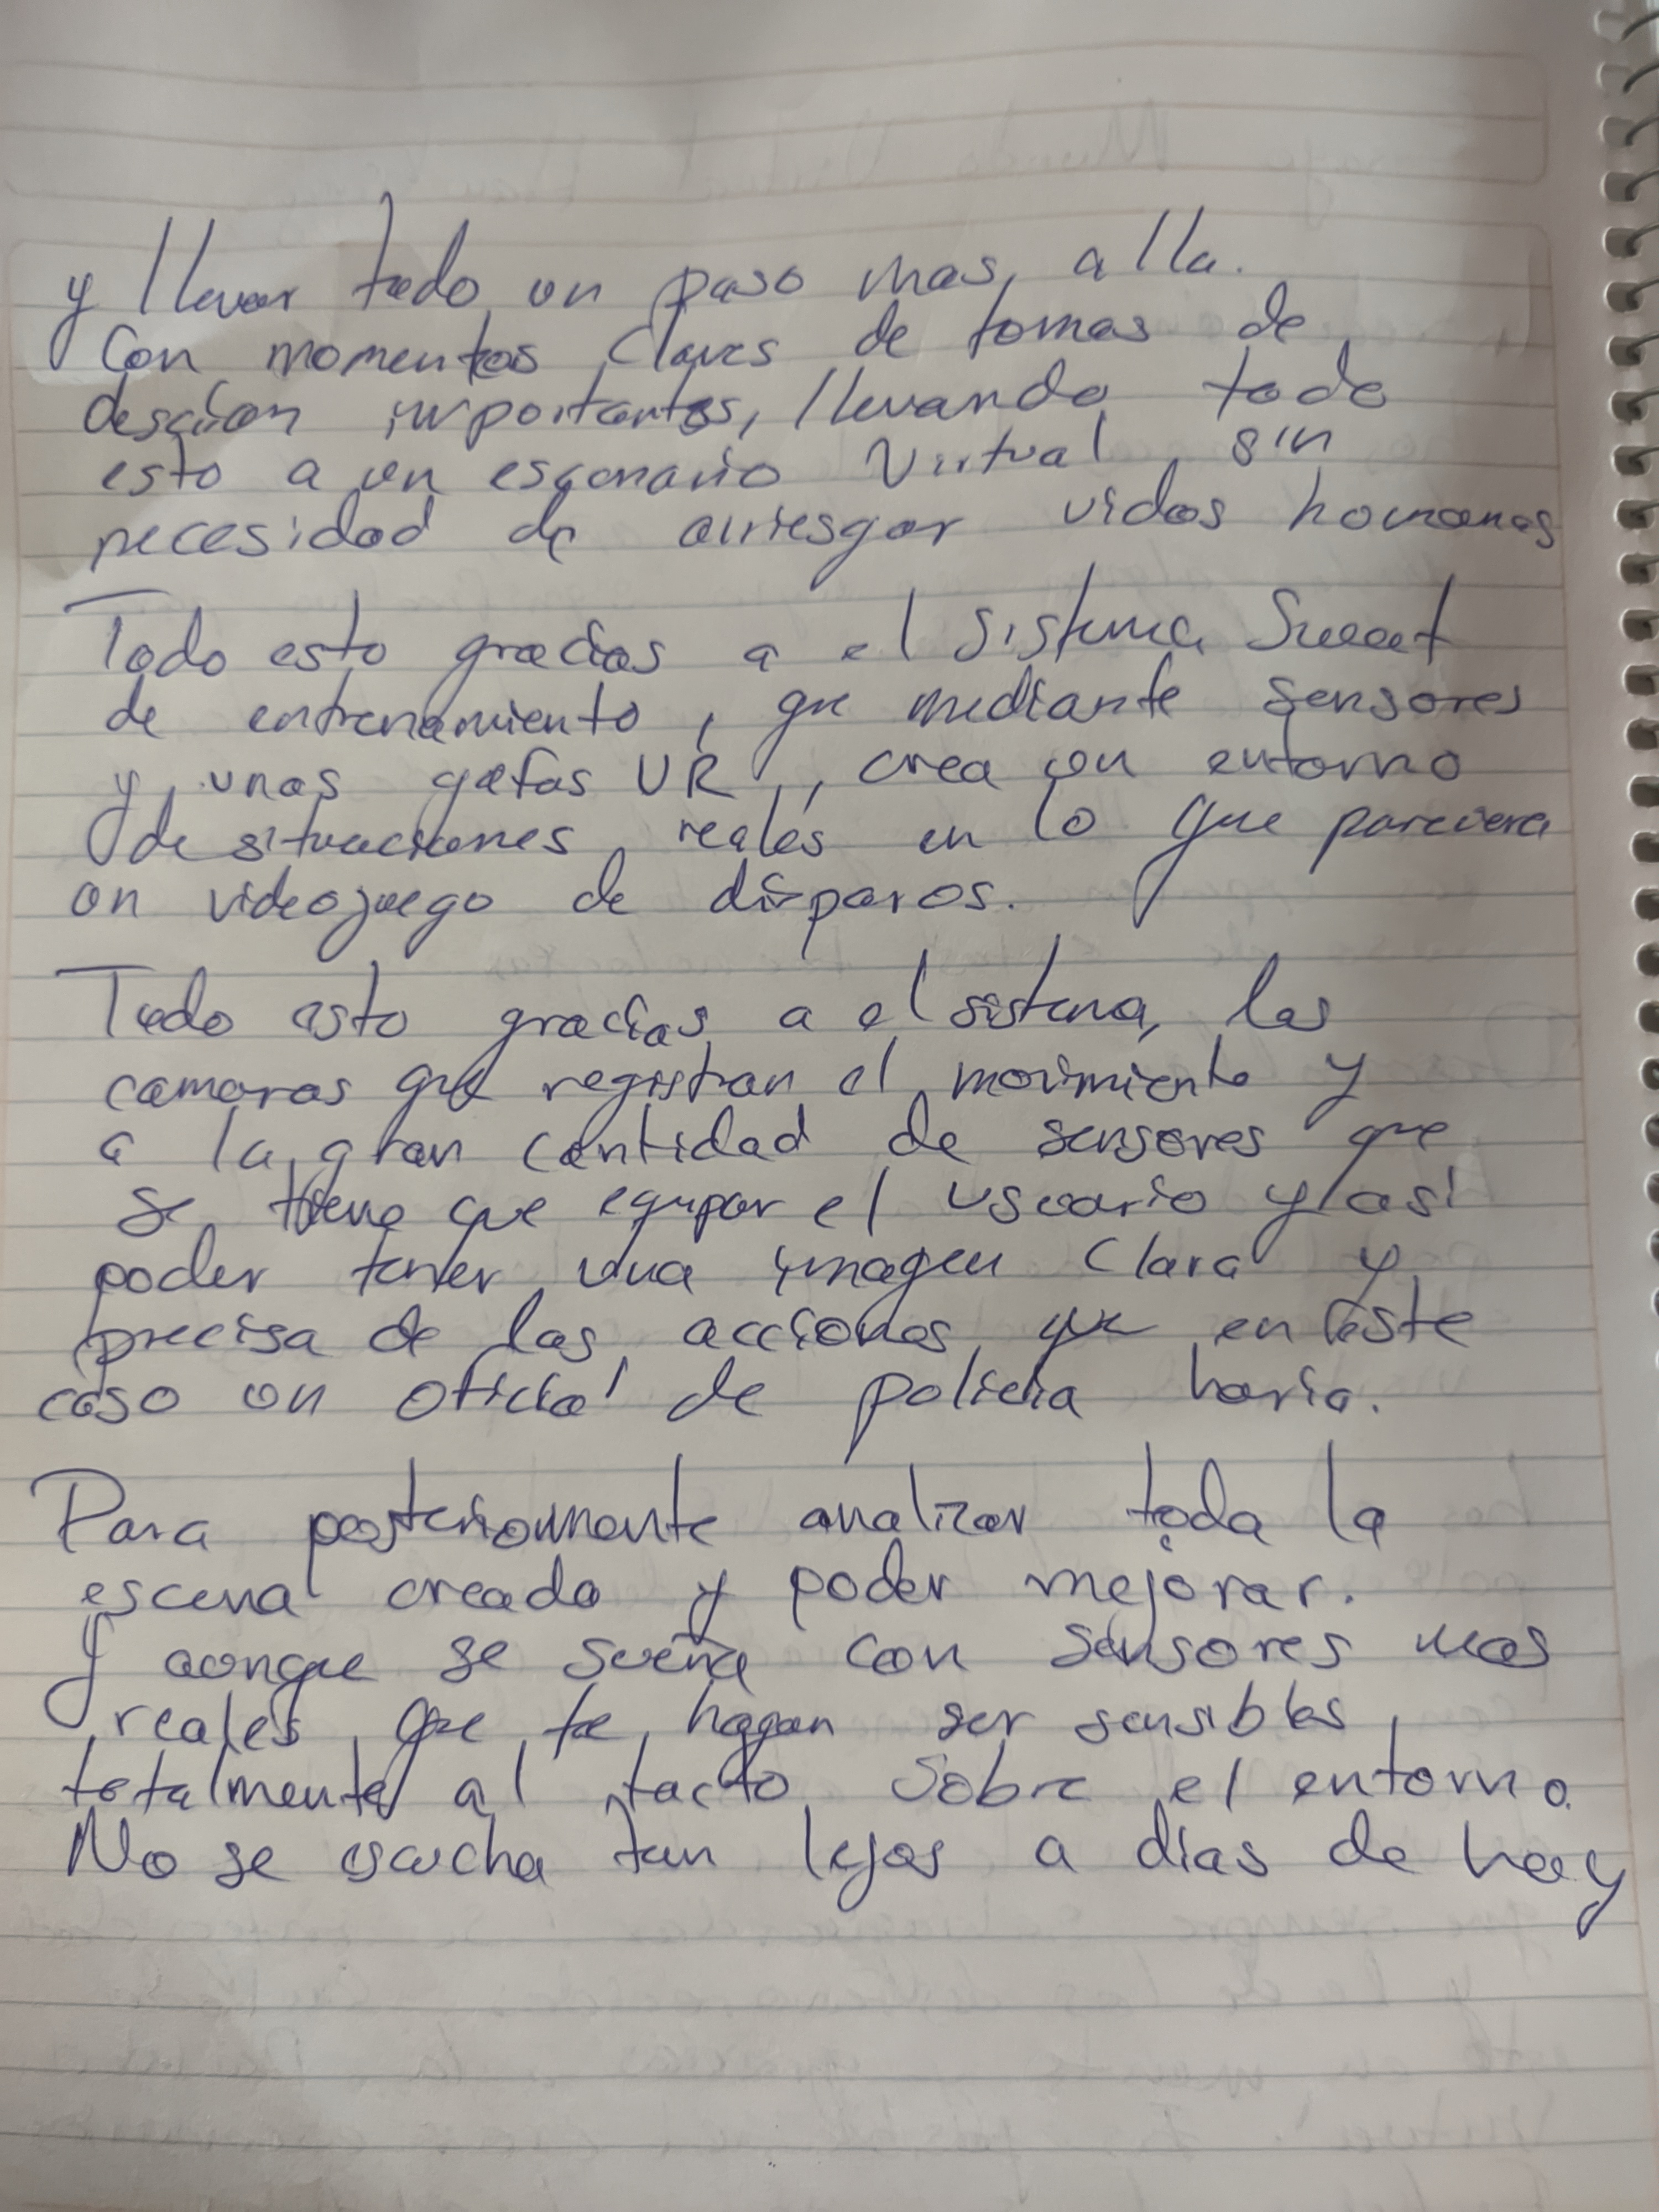 y llevar todo un paso mas alla.
Con momentos claves de tomas de
descion importantes, llevando todo
esto a un escenario Virtual sin
necesidad de arriesgar vidas humanas
Todo esto gracias a el sistema
de entrenamiento, que mediante sensores
y unas gafas VR, crea un entorno
de situaciones reales en lo que pareciera
un videojuego de disparos.
Todo esto gracias a el sistema, las
camaras que registran el movimiento y
a la gran cantidad de sensores que
se tiene que equipar el usuario y asi
poder tener una imagen clara y
precisa de las acciones que en este
caso un oficial de policia haria.
Para posteriormente analizar toda la
escena creada y poder mejorar.
Y aunque se sueña con sensores mas
reales que te hagan ser sensibles
totalmente al tacto sobre el entorno.
No se escucha tan lejos a dias de hoy